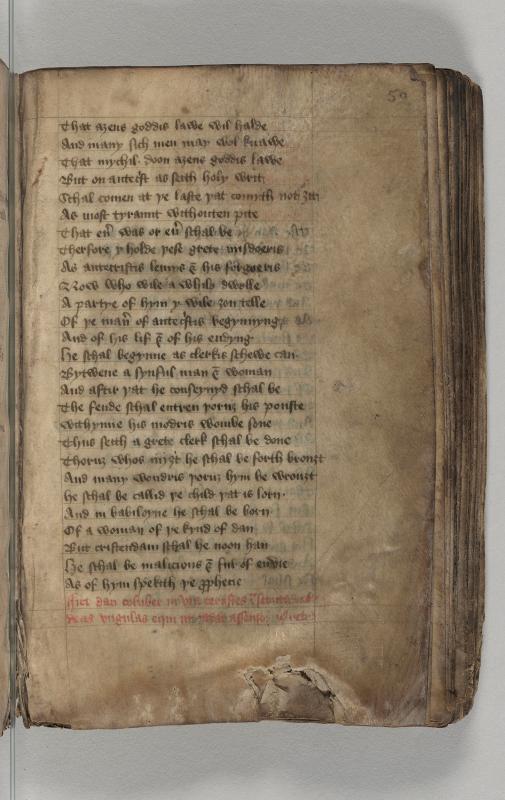 50
That aȝens goddis lawe wil halde
And many sich men may wol knawe
That mychil doon aȝens goddis lawe
But on antecrist as seith holy writ
Schal comen at þe laste þat comyth not ȝit
As most tyraunt withouten pite
That eu̅ was or eu̅ schal be
Therfore y holde þese grete misdoeris
As antecristis lemys & his forgoeris
Now who wile a while dwelle
A partye of hym y wile ȝou telle
Of þe man̅ of antec̓stis begynnyng
And of his lif & of his endyng
He schal begynne as clerkis schewe can
Bytwene a synful man & woman
And aftir þat he conseyuyd schal be
The fende schal entren þoruȝ his pouste
withynne his modris wombe sone
Thus seith a grete clerk schal be done
Thoruȝ whos myȝt he schal be forth brouȝt
And many wondris þoruȝ hym be wrouȝt
he schal be callid þe child þat is lorn
And in babiloyne he schal be born
Of a woman of þe kynd of dan
But cristendam schal he noon han
He schal be malicious & ful of enuie
As of hym spekith þe ꝓphecie
Fiet dan coluber in via cerastes